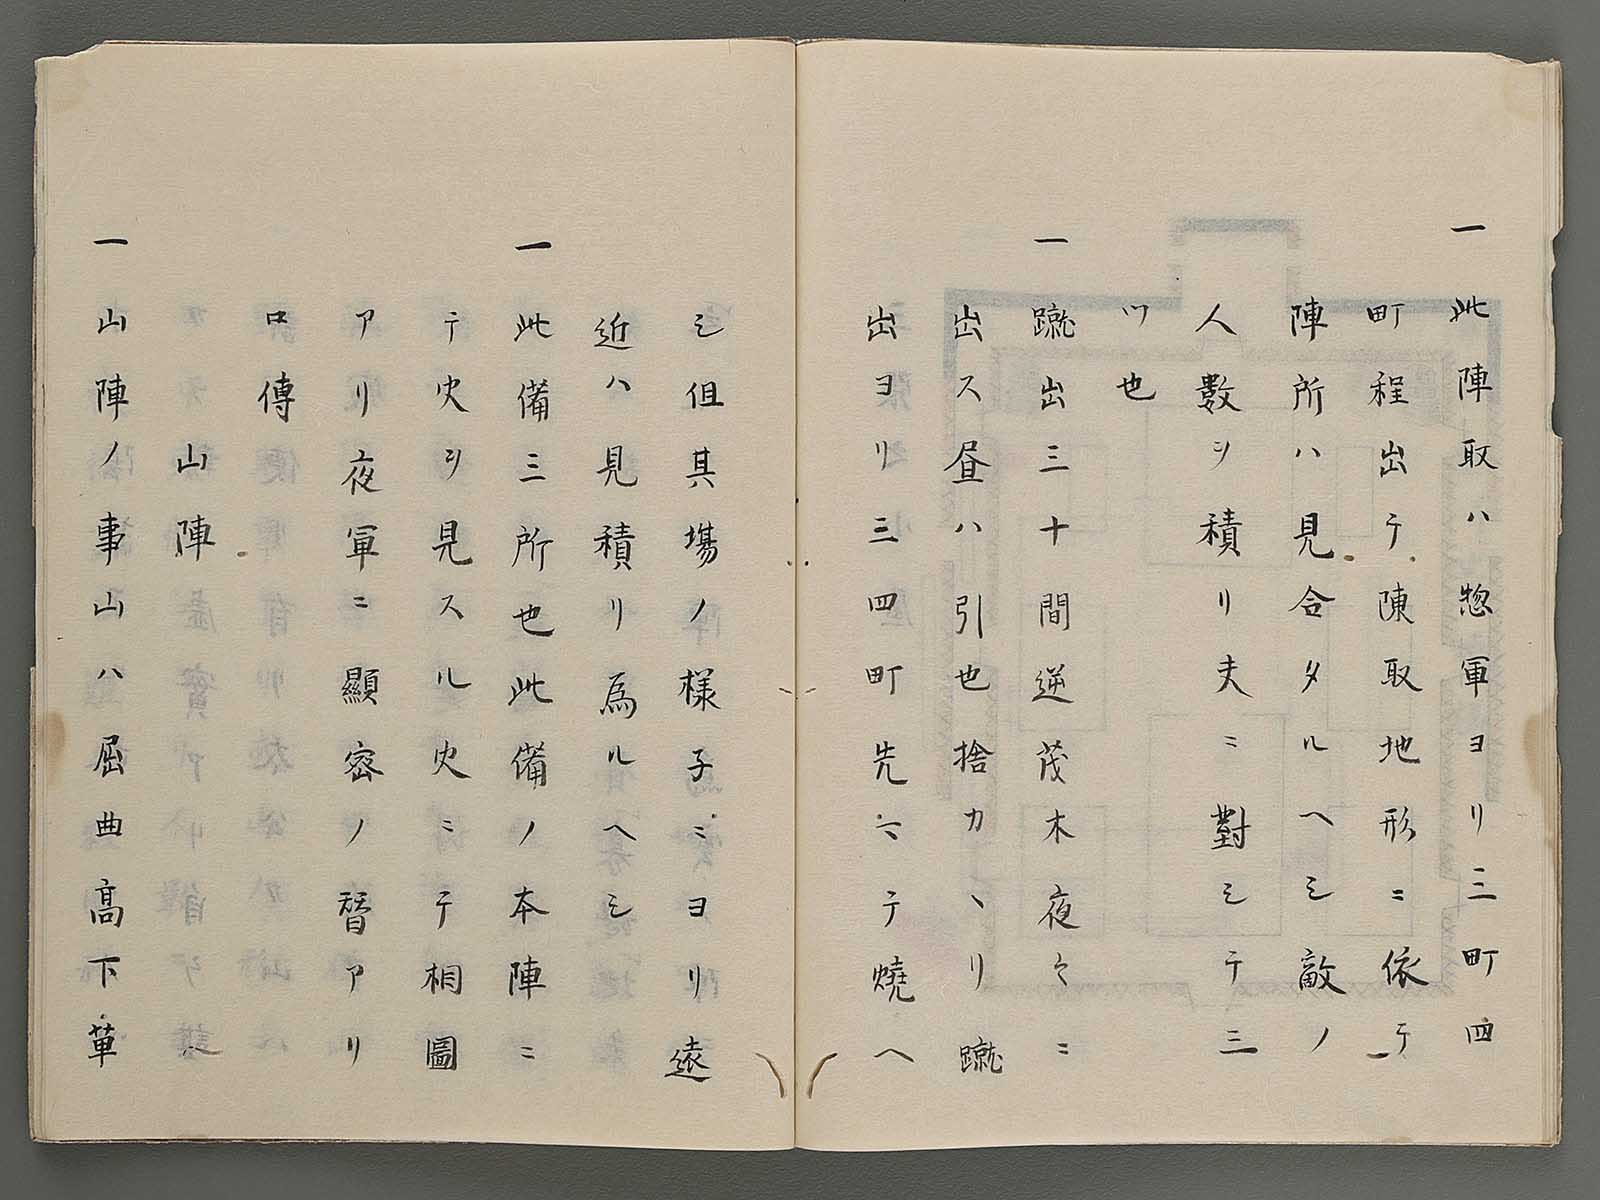 一 此陣取ハ惣軍ヨリ三町四
町程出テ陳取地形ニ依テ
陣所ハ見合タルヘシ敵ノ
人數ヲ積リ夫ニ對シテ三
ツ也
一 蹴出三十間逆茂木夜々ニ
出ス昼ハ引也捨カヽリ蹴
出ヨリ三四町先ニテ燒ヘ
シ但其場ノ様子ニヨリ遠
近ハ見積リ爲ルヘシ
一 此備三所也此備ノ本陣ニ
テ火ヲ見スル火ニテ相圖
アリ夜軍ニ顯密ノ替アリ
口傳
山陣
一 山陣ノ事山ハ屈曲高下草